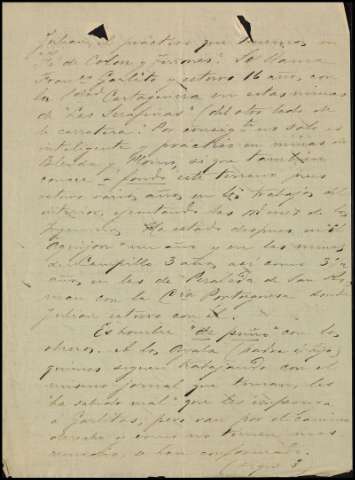 Julian, el práctico que tenemos en
de Colon y Jerónes. Se llama
Franco Garlito y estuvo 16 años con
la Socd Cartagenera en estas minas
de "Las Serafinas" (del otro lado de
la carretera). Por consigte no solo es
inteligente y practico en minas de
Blenda y Plomo, si que tambien
conoce á fondo este terreno pues
estuvo varios años en los trabajos del
interior, ejecutando las de los
Ha estado despues en el
un año y en las minas
del Campillo 3 años, así como 3½
años en las de Peraleda de San Ro-
man con la Cia Portuguesa donde
Julian estuvo con él.
Es hombre "de puño" con los
obreros. A los Ayala (padre é hijo)
quienes siguen trabajando con el
mismo jornal que tenian, les
"ha sabido mal" que les impusiera
á Garlitos; pero van por el camino
derecho y como no tienen mas
remedio, se han conformado.
(sigue 3